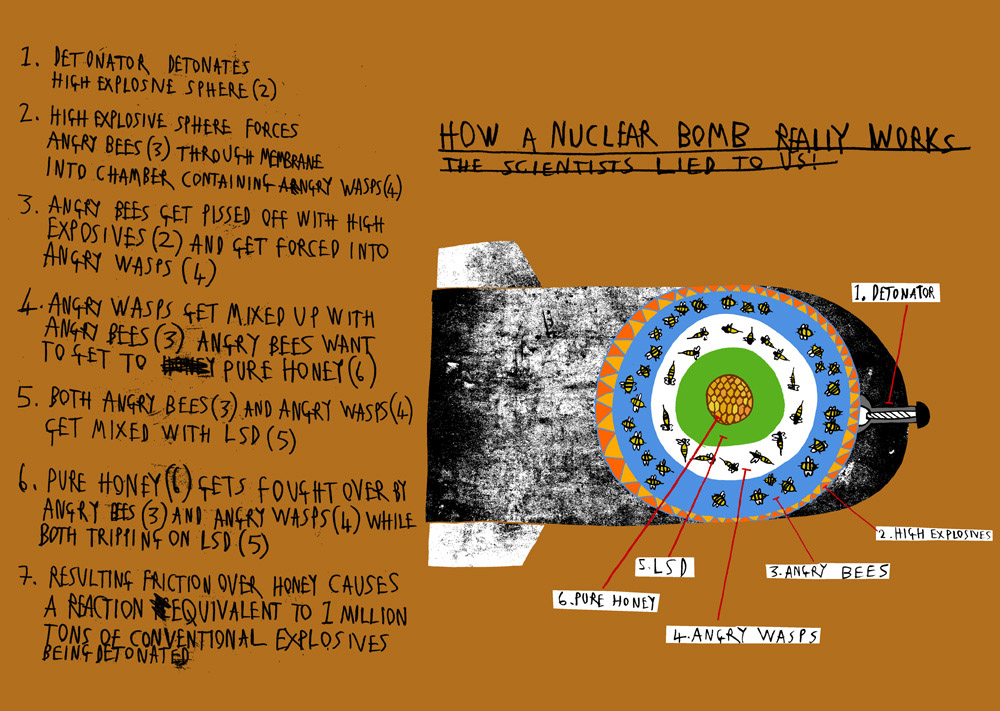 1. DETONATOR DETONATES
HIGH EXPLOSIVE SPHERE (2)
2. HIGH EXPLOSIVE SPHERE FORCES
ANGRY BEES (3) THROUGH MEMBRANE
INTO CHAMBER CONTAINING ANGRY WASPS (4)
3. ANGRY BEES GET PISSED OFF WITH HIGH
EXPOSIVES (2) AND GET FORCED INTO
ANGRY WASPS (4)
4. ANGRY WASPS GET MIXED UP WITH
ANGRY BEES (3) ANGRY BEES WANT
TO GET TO HONEY PURE HONEY (6)
5. BOTH ANGRY BEES (3) AND ANGRY WASPS (4)
GET MIXED WITH LSD (5)
6. PURE HONEY (6) GETS FOUGHT OVER BY
ANGRY BEES (3) AND ANGRY WASPS (4) WHILE
BOTH TRIPPING ON LSD (5)
7. RESULTING FRICTION OVER HONEY CAUSES
A REACTION EQUIVALENT TO 1 MILLION
TONS OF CONVENTIONAL EXPLOSIVES
BEING DETONATED
HOW A NUCLEAR BOMB REALLY WORKS
THE SCIENTISTS LIED TO US!
1. DETONATOR
2. HIGH EXPLOSIVES
3. ANGRY BEES
5. LSD
6. PURE HONEY
4. ANGRY WASPS